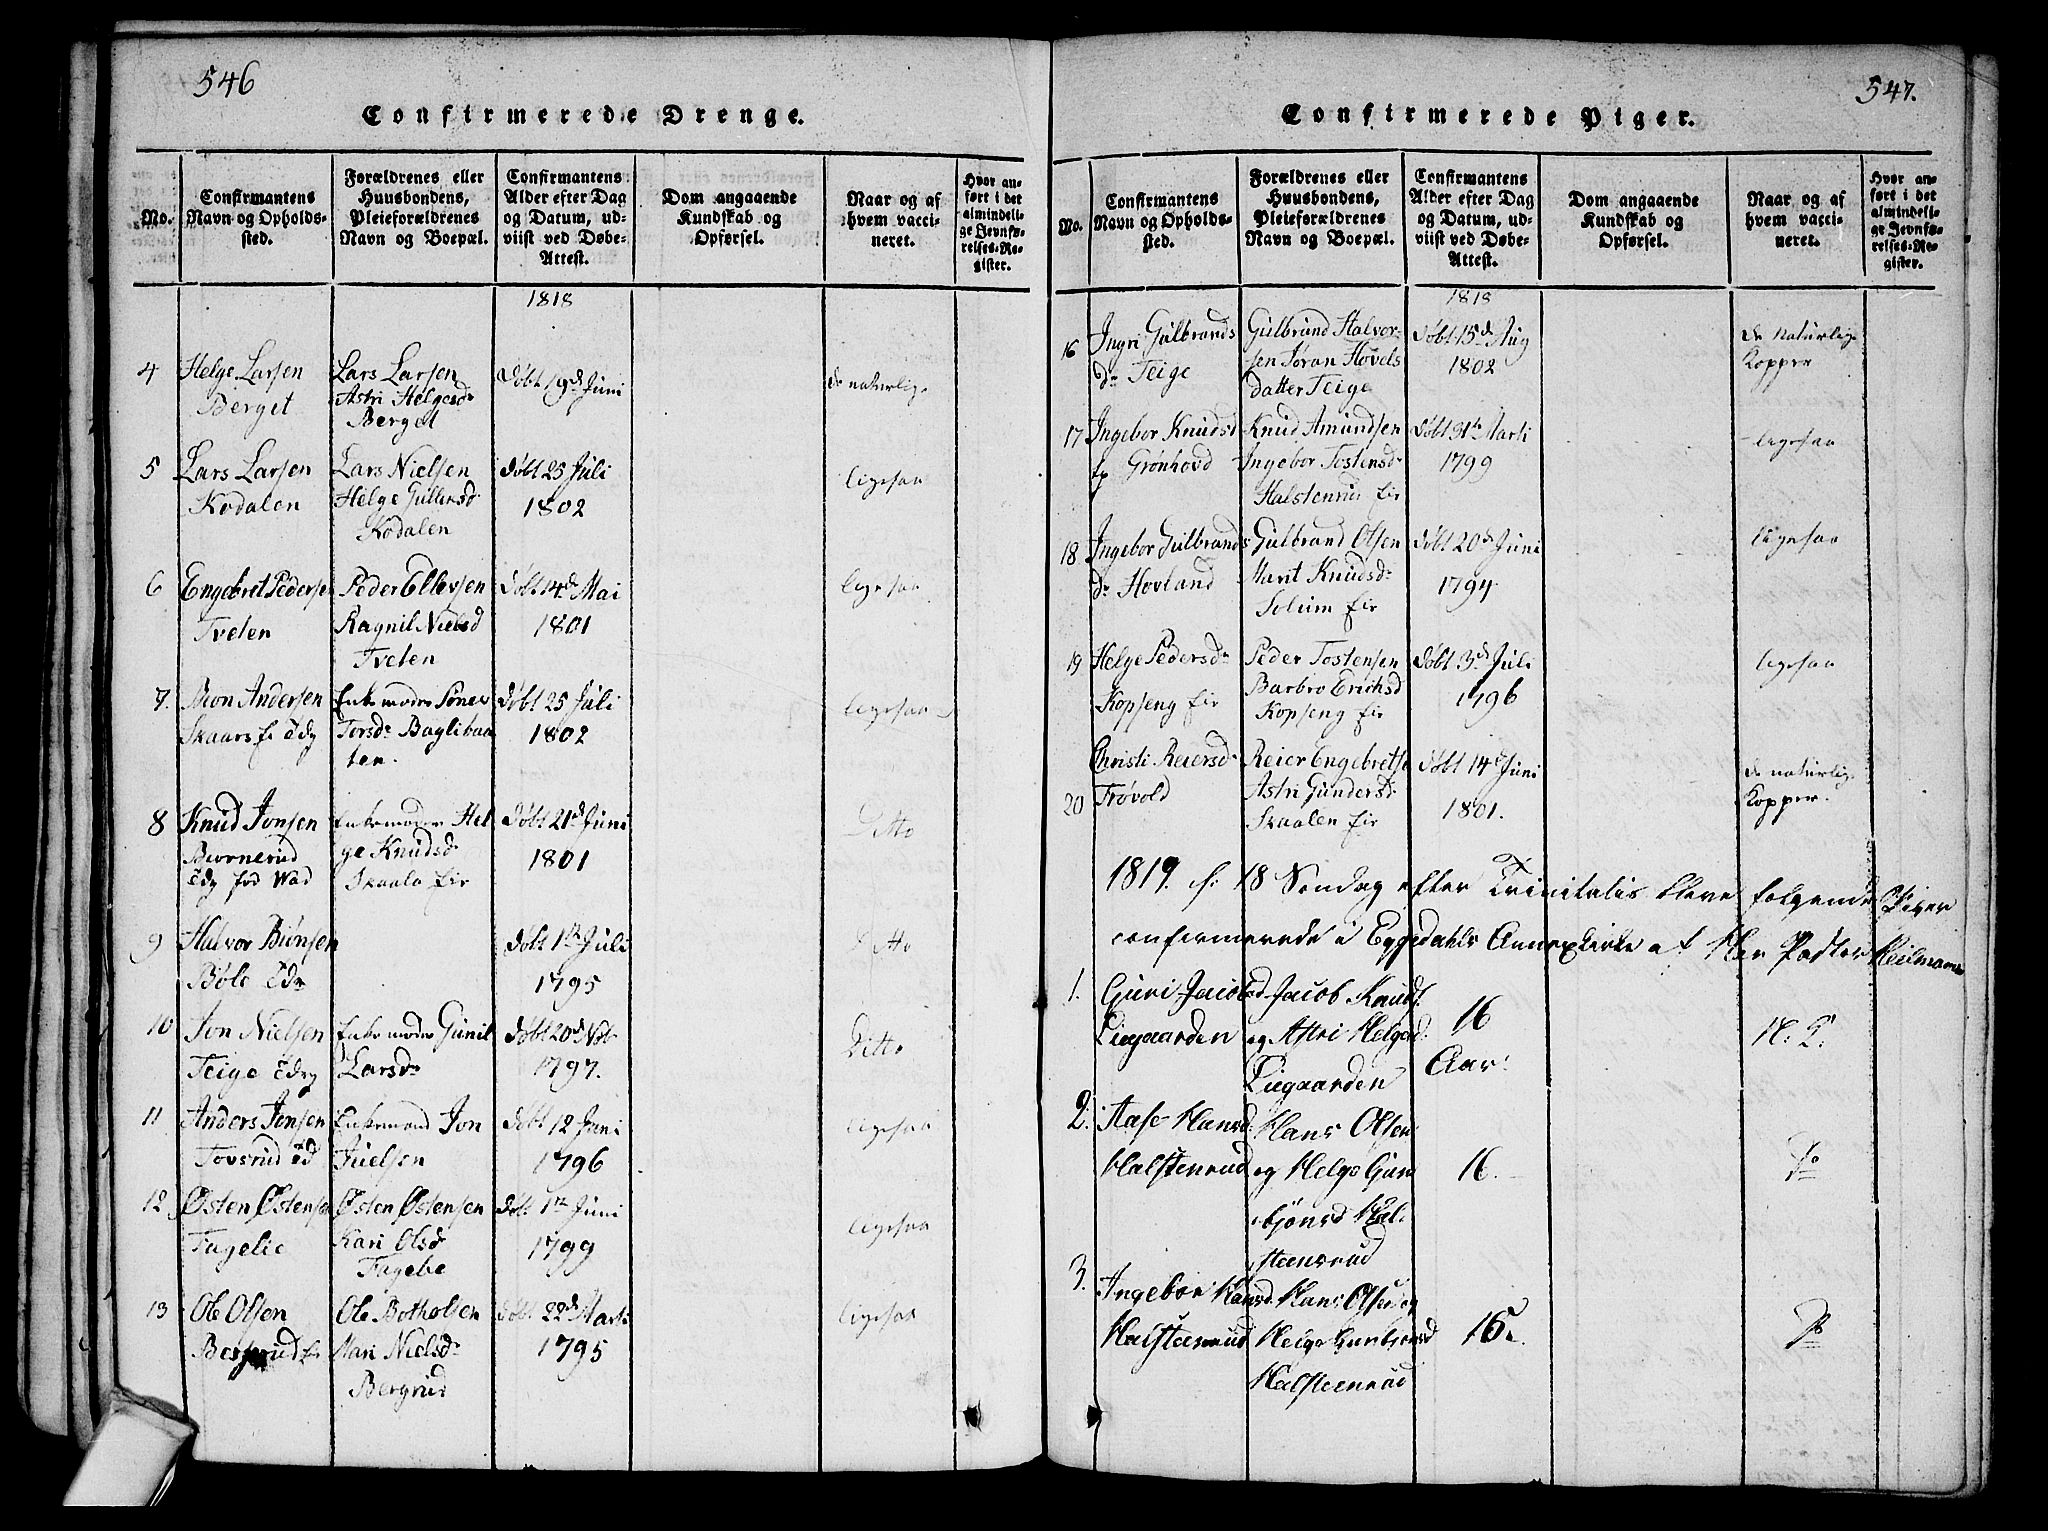 546
Confirmerede Drenge.
No.
Confirmantens
Navn og Opholds-
sted.
Forældrenes eller
Huusbondens,
Pleieforældrenes
Navn og Boepæl.
Confirmantens
Alder efter Dag
og Datum, ud-
viist ved Døbe-
Attest.
Dom angaaende
Kundskab og
Opførsel.
Naar og af
hvem vacci-
neret.
Hvor an-
ført i det
almindeli-
ge Jevnfø-
relses-Re-
gister.
1818
4 Helge Larsen
Berget
Lars Larsen
Astri Helgesdr
Berget
Døbt 19d Juni
de naturlige
5 Lars Larsen
Kodalen
Lars Nielsen
Helge Gullensd
Kodalen
døbt 25 Juli
1802
ligesaa
6 Engebret Peders
Tveten
Peder Ellevsen
Ragnil Nielsd
Tveten
Døbt 14d Mai
1801
ligesaa
7. Andersen
Skaars
Enkemoder
Torsdr Baglibaa
ten.
Døbt 25 Juli
1802
ligesaa
8 Knud Jonsen
Beornerud
Enkemoder Hel
ge Knudsd
Skaalo
Døbt 21d Juni
1801
Ditto
9 Halvor Biönsen
Böle
døbt 1te Juli
1795
Ditto
10 Jon Nielsen
Teige
Enkemoder Gunil
Larsdr
Døbt 20d Nob
1797.
Ditto
11 Anders Jonsen
Tovsrud
Enkemand Jon
Juelsen
døbt 12 Juni
1796
ligesaa
12 Østen Østensen
Fagelie
Østen Østensen
Kari Olsd
Døbt 1te Juni
1799
ligesaa
13 Ole Olsen
Ole Botholsen
Mari Nielsdr
Bergrud
døbt 22d Marti
1795
ligesaa
547.
Confirmerede Piger.
No.
Confirmantens
Navn og Opholds-
sted.
Forældrenes eller
Huusbondens,
Pleieforældrenes
Navn og Boepæl.
Confirmantens
Alder efter Dag
og Datum, ud-
viist ved Døbe-
Attest.
Dom angaaende
Kundskab og
Opførsel.
Naar og af
hvem vacci-
neret.
Hvor an-
ført i det
almindeli-
ge Jevnfø-
relses-Re-
gister.
1818
16 Ingri Gulbrands
dr Teige
Gulbrand Halvor-
sen Jöran Hovels
datter Teige
Døbt 15d Aug
1802
de Naturlige
Kopper
17 Ingebor Knudsd
Grönhovd
Knud Amundsen
Ingebor Tostensdr
Halstenrud
Døbt 31te Marti
1799
ligesaa
18 Ingebor Gulbrands
dr Hovland
Gulbrand Olsen
Marit Knudsdr
Solum
Døbt 20d Juni
1794
ligesaa
19 Helge Pedersdr
Kopseng
Peder Tostensen
Barbro Erichsd
Kopseng
Døbt 3d Juli
1796
ligesaa
20 Christi Reiersdr
Trövold
Reier Engebretse
Astri Gundersd
Skaalen
Døbt 14d Juni
1801.
de naturlige
Kopper.
1819. 18 Söndag efter Trinitatis bleve fölgende Piger
confirmerede i Eggedahls Annexkirke af Her Pastor Heilmann
1. Guri Jacobsd
Liegaarden
Jacob Knuds
og Astri Helgesd:
Liegaarden
16
Aar:
2. Aase Hansd:
Halstenrud
Hans Olsen
og Helge Gun
björnsd Hal
steenrud
16.
Do
3. Ingebor Hansd.
Halsteenrud
Hans Olsen og
Helge Gunbjørnsd
Halsteenrud
15.
Do